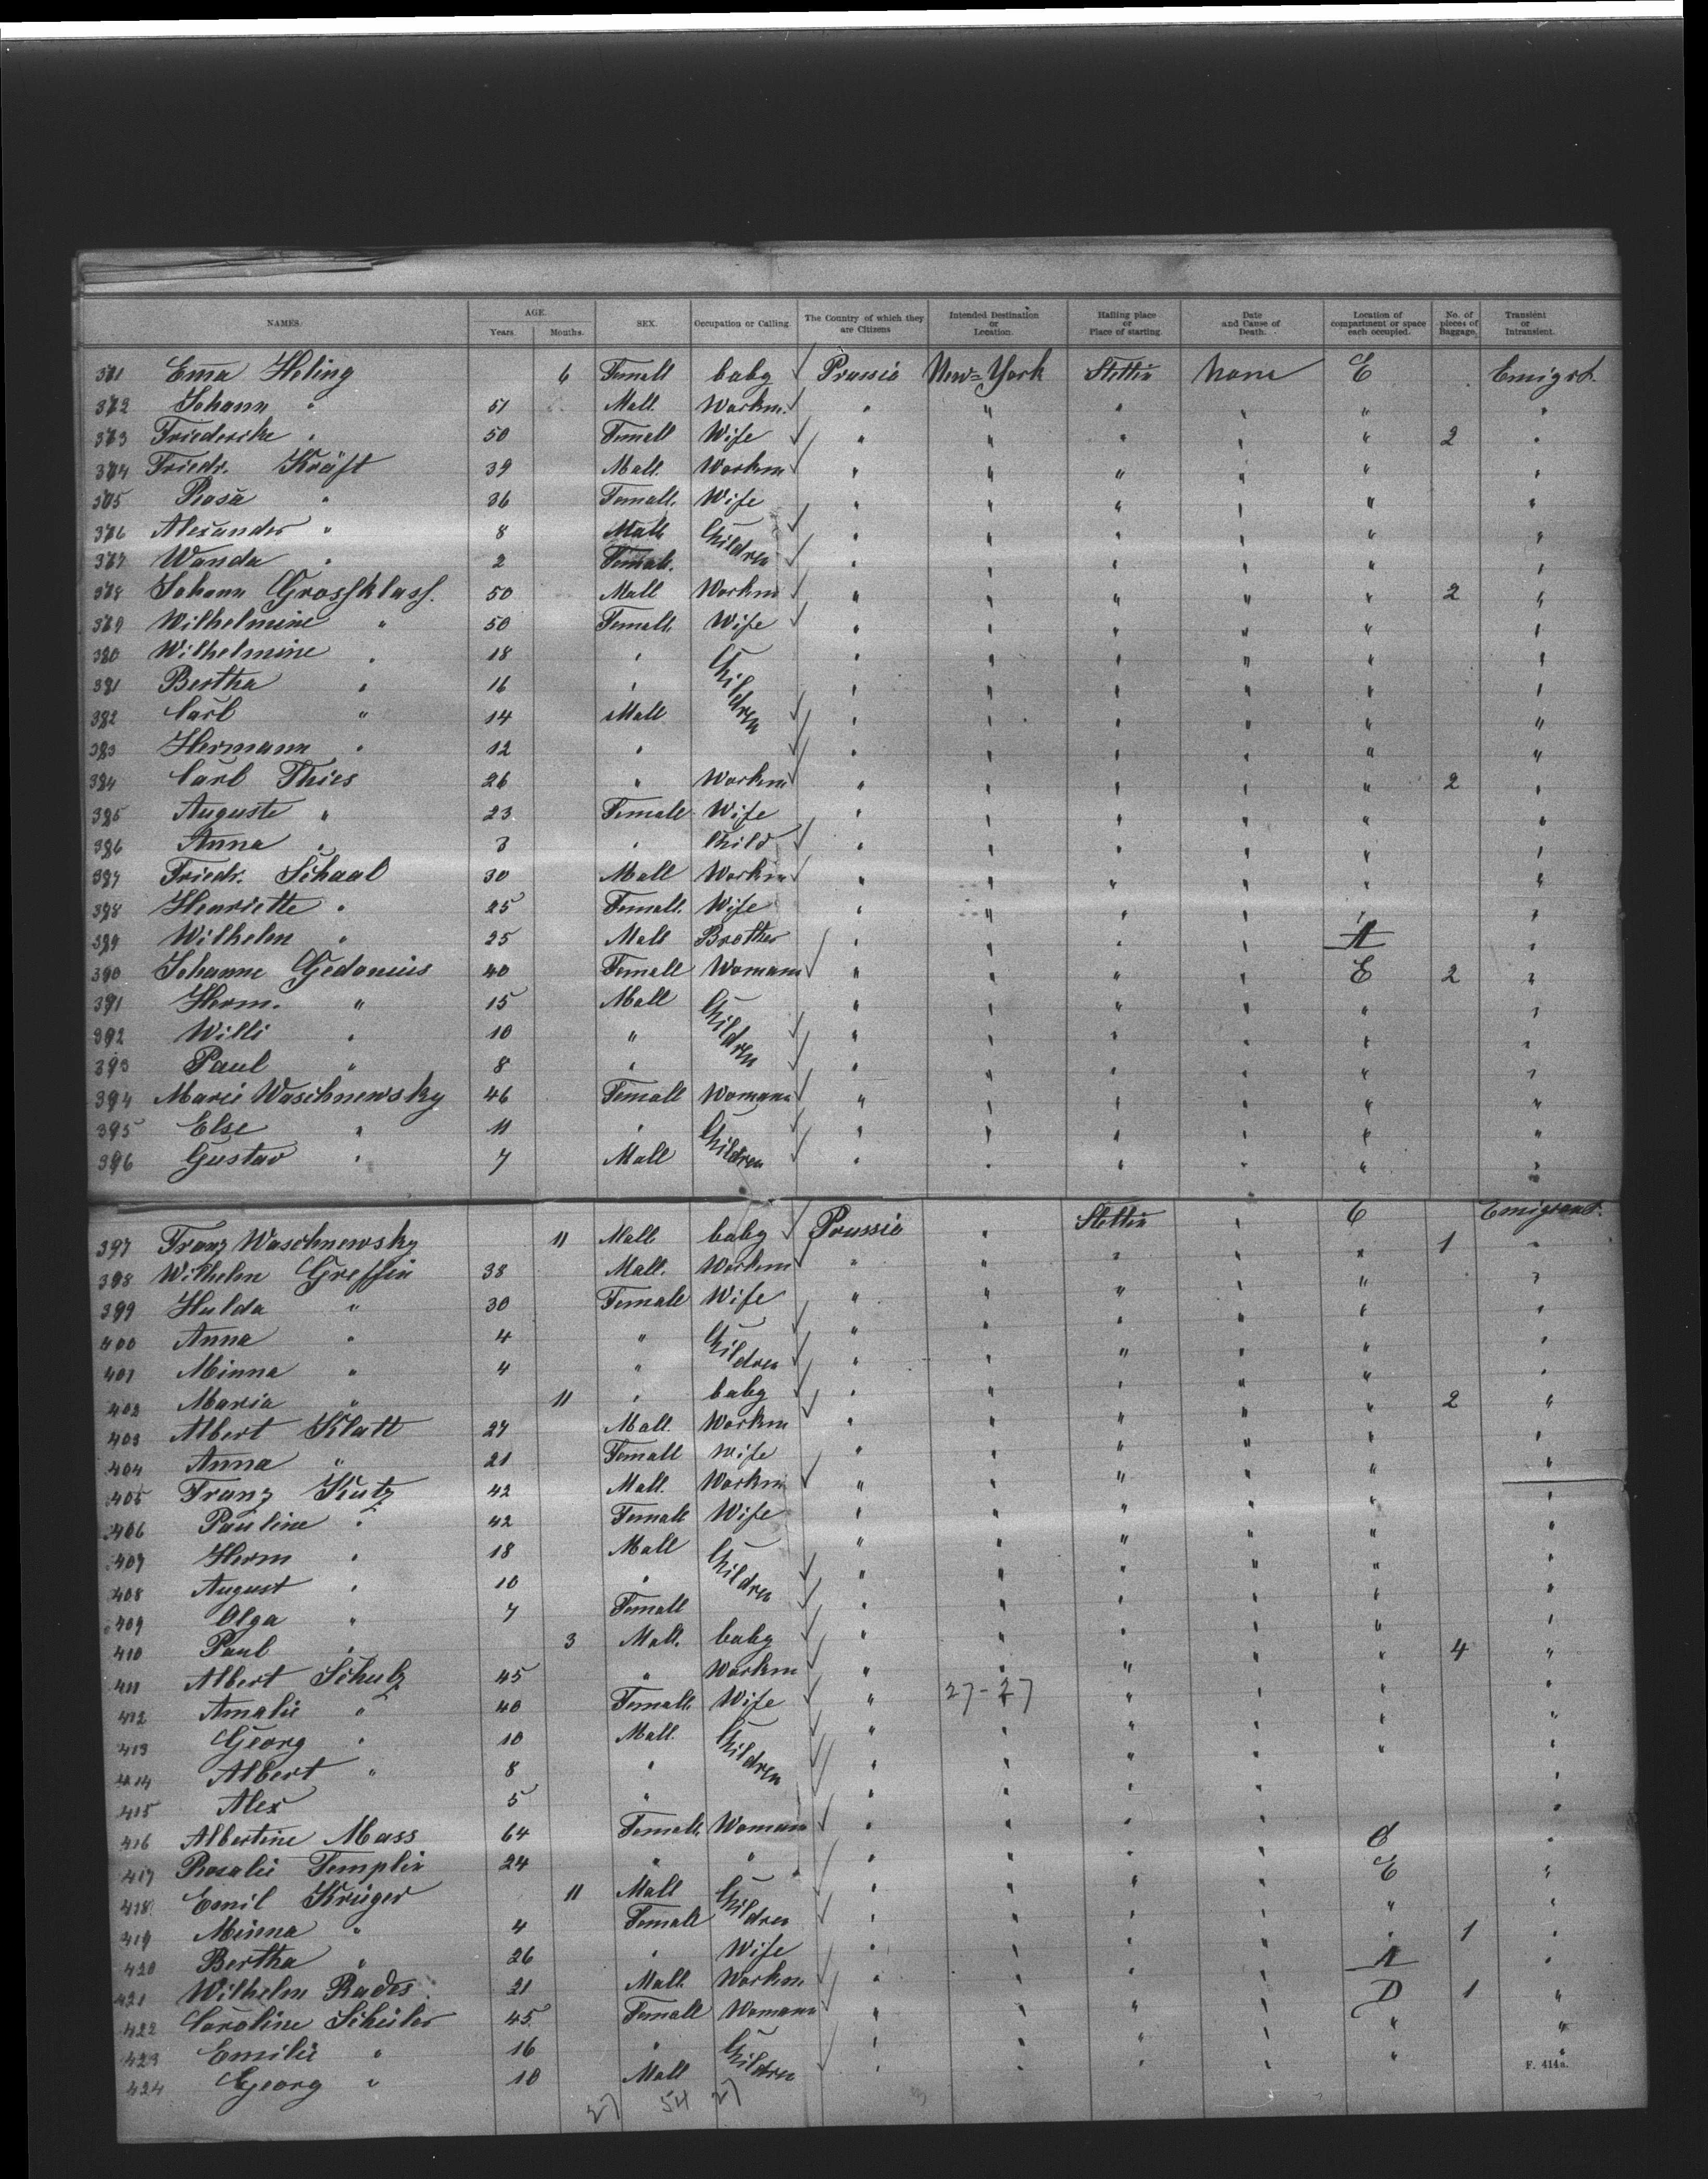 NAMES. AGE. Years. Months. SEX. Occupation or Calling. The Country of which they are Citizens Intended Destination or Location. Hailing place or Place of starting. Date and Cause of Death. Location of compartment or space each occupied. No. of pieces of Baggage. Transient or Intransient.
371 Ema Heling 6 Femall baby Prussia New-York Stettin None E Emigrt.
372 Johann " 51 Mall. Workm. " " " " " "
373 Friedericke " 50 Femall Wife " " " " " 2 "
374 Friedr. Kräft 39 Mall. Workm " " " " " "
375 Rosa " 36 Femall. Wife " " " " " "
376 Alexander " 8 Mall. Children " " " " " "
377 Wanda " 2 Femall. " " " " " "
378 Johann Grossklass. 50 Mall Workm " " " " " 2 "
379 Wilhelmine " 50 Femall. Wife " " " " " "
380 Wilhelmine " 18 " Children " " " " " "
381 Bertha " 16 " " " " " " "
382 Carl " 14 Mall " " " " " "
383 Hermann " 12 " " " " " " "
384 Carl Thies 26 " Workm " " " " " 2 "
385 Auguste " 23 Femall Wife " " " " " "
386 Anna " 3 " Child " " " " " "
387 Friedr. Schaal 30 Mall Workm " " " " " "
388 Henriette " 25 Femall. Wife " " " " " "
389 Wilhelm " 25 Mall Brother " " " " A "
390 Johanne Gedonius 40 Femall Womann " " " " E 2 "
391 Herm. " 15 Mall Children " " " " " "
392 Willi " 10 " " " " " " "
393 Paul " 8 " " " " " " "
394 Marie Waschnewsky 46 Femall Womann " " " " " "
395 Else " 11 " Children " " " " " "
396 Gustav " 7 Mall " " " " " "
397 Franz Waschnewsky 11 Mall baby Prussia " Stettin " E 1 Emigrant.
398 Wilhelm Greffin 38 Mall. Workm " " " " " "
399 Hulda " 30 Femall Wife " " " " " "
400 Anna " 4 " Children " " " " " "
401 Minna " 4 " " " " " " "
402 Maria " 11 " baby " " " " " 2 "
403 Albert Klatt 27 Mall. Workm " " " " " "
404 Anna " 21 Femall Wife " " " " " "
405 Franz Kutz 42 Mall. Workm " " " " " "
406 Pauline " 42 Femall Wife " " " " " "
407 Herm " 18 Mall Children " " " " " "
408 August " 10 " " " " " " "
409 Olga " 7 Femall " " " " " "
410 Paul " 3 Mall. baby " " " " " 4 "
411 Albert Schulz 45 " Workm " " " " " "
412 Amalie " 40 Femall. Wife " 27-27 " " " "
413 Georg " 10 Mall. Children " " " " " "
414 Albert " 8 " " " " " "
415 Alex 5 " " " " " "
416 Albertine Mass 64 Femall. Womann " " " " C "
417 Rosalie Templin 24 " " " " " " E "
418 Emil Krüger 11 Mall Children " " " " " "
419 Minna " 4 Femall " " " " " 1 "
420 Bertha " 26 " Wife " " " " A "
421 Wilhelm Rades. 21 Mall. Workm. " " " " D 1 "
422 Caroline Schüler 45 Femall Womann " " " " " "
423 Emilie " 16 " Children " " " " " "
424 Georg " 10 Mall " " " "
F. 414a.
27 54 27